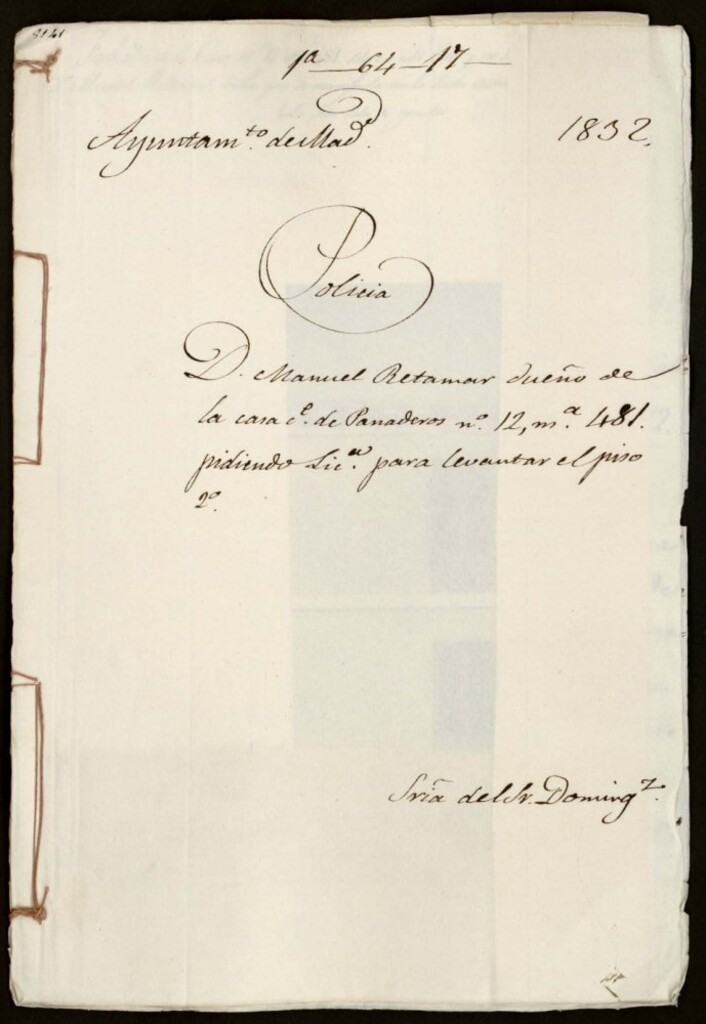 1ª—64—17—
Ayuntam.to de Mad.d
1832.
Policia
D. Manuel Retamar dueño de
la casa c.e de Panaderos n.o 12, m.a 481.
pidiendo Lic.a para levantar el piso
2.o
Sría del Sr. Doming.z